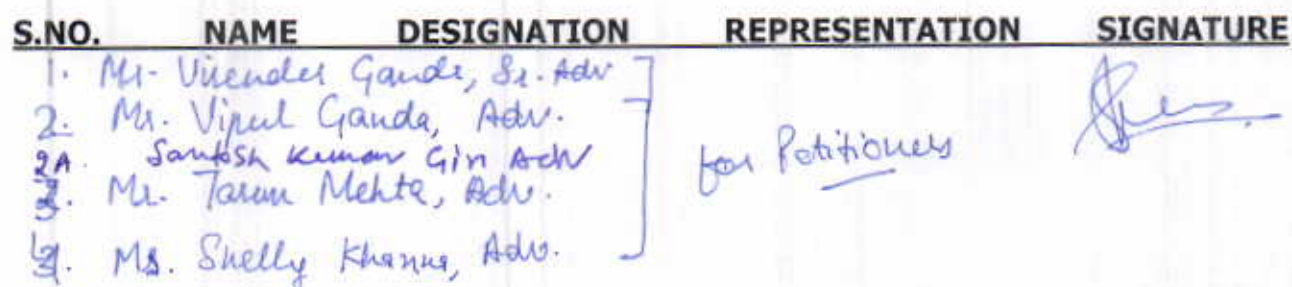 S.NO. NAME DESIGNATION REPRESENTATION SIGNATURE
1. Mr. Virender Ganda, Sr. Adv
2. Mr. Vipul Ganda, Adv.
2A. Santosh Kumar Giri Adv
3. Mr. Tarun Mehta, Adv.
for Petitioners
4. Ms. Shelly Khanna, Adv.